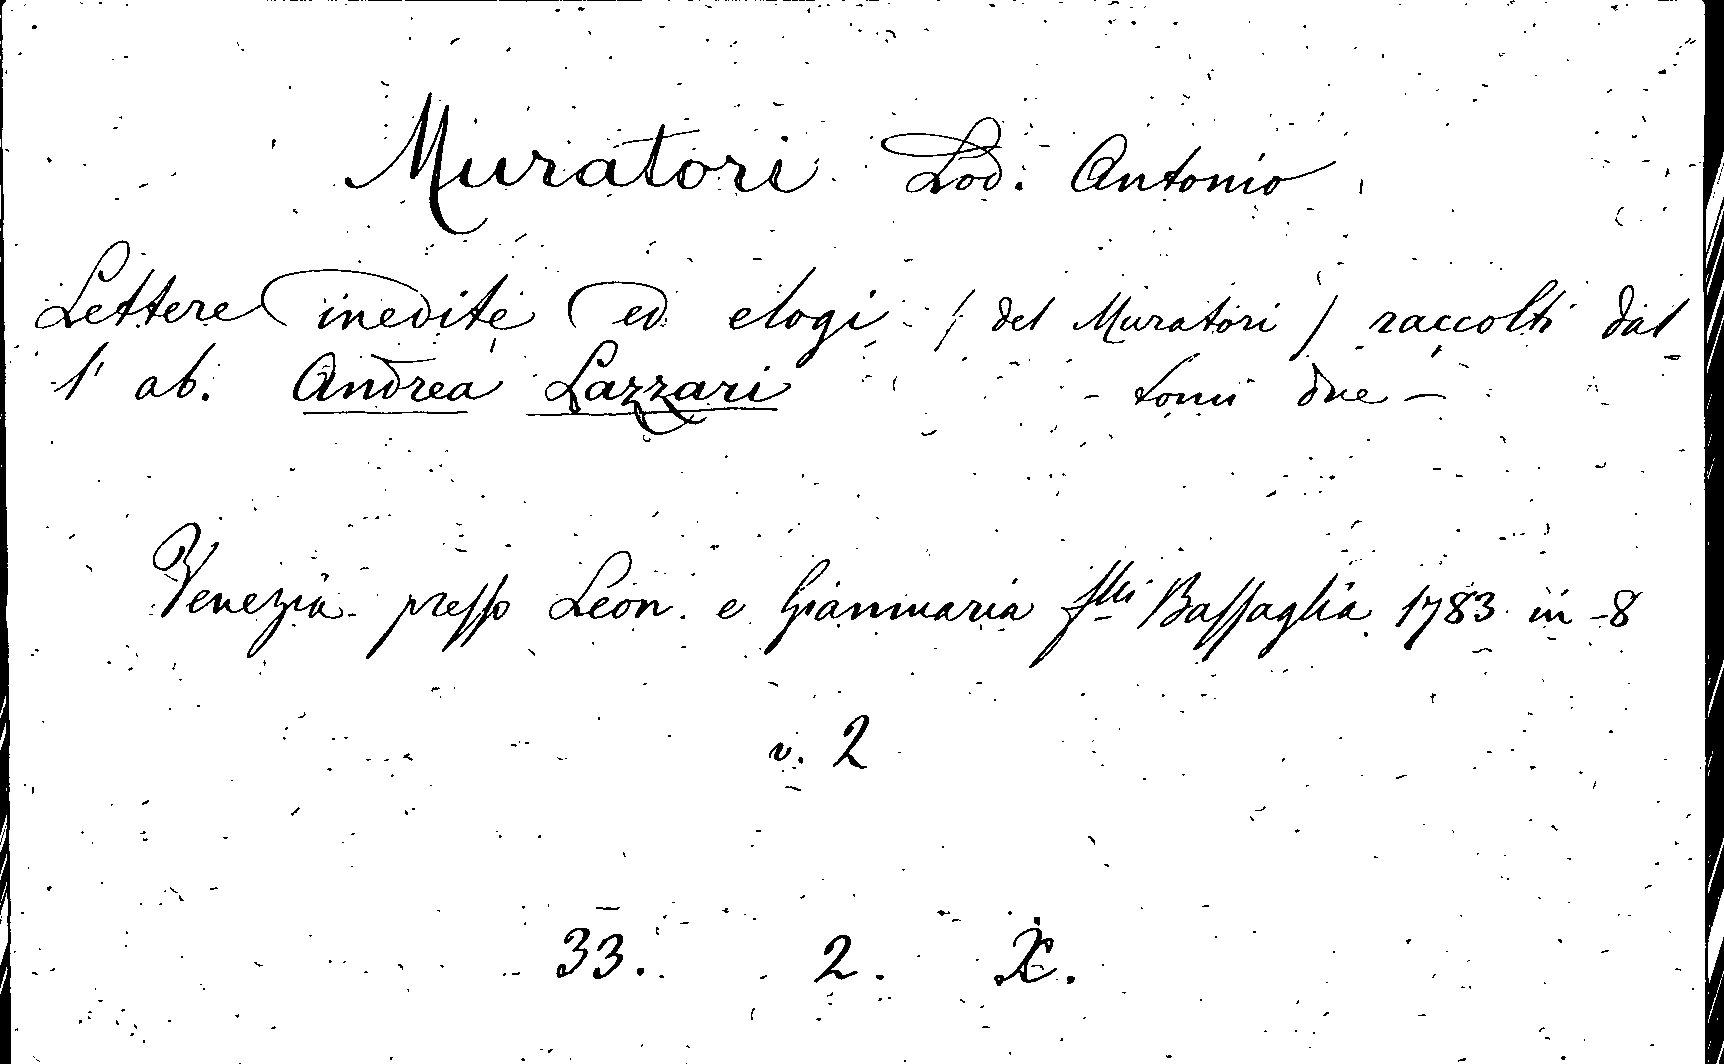 Muratori Lod. Antonio
Lettere inedite ed elogi (del Muratori) raccolti dal
l' ab. Andrea Lazzari - tomi due -
Venezia presso Leon. e Gianmaria flli Bassaglia 1783 in -8
v. 2
33. 2. X.